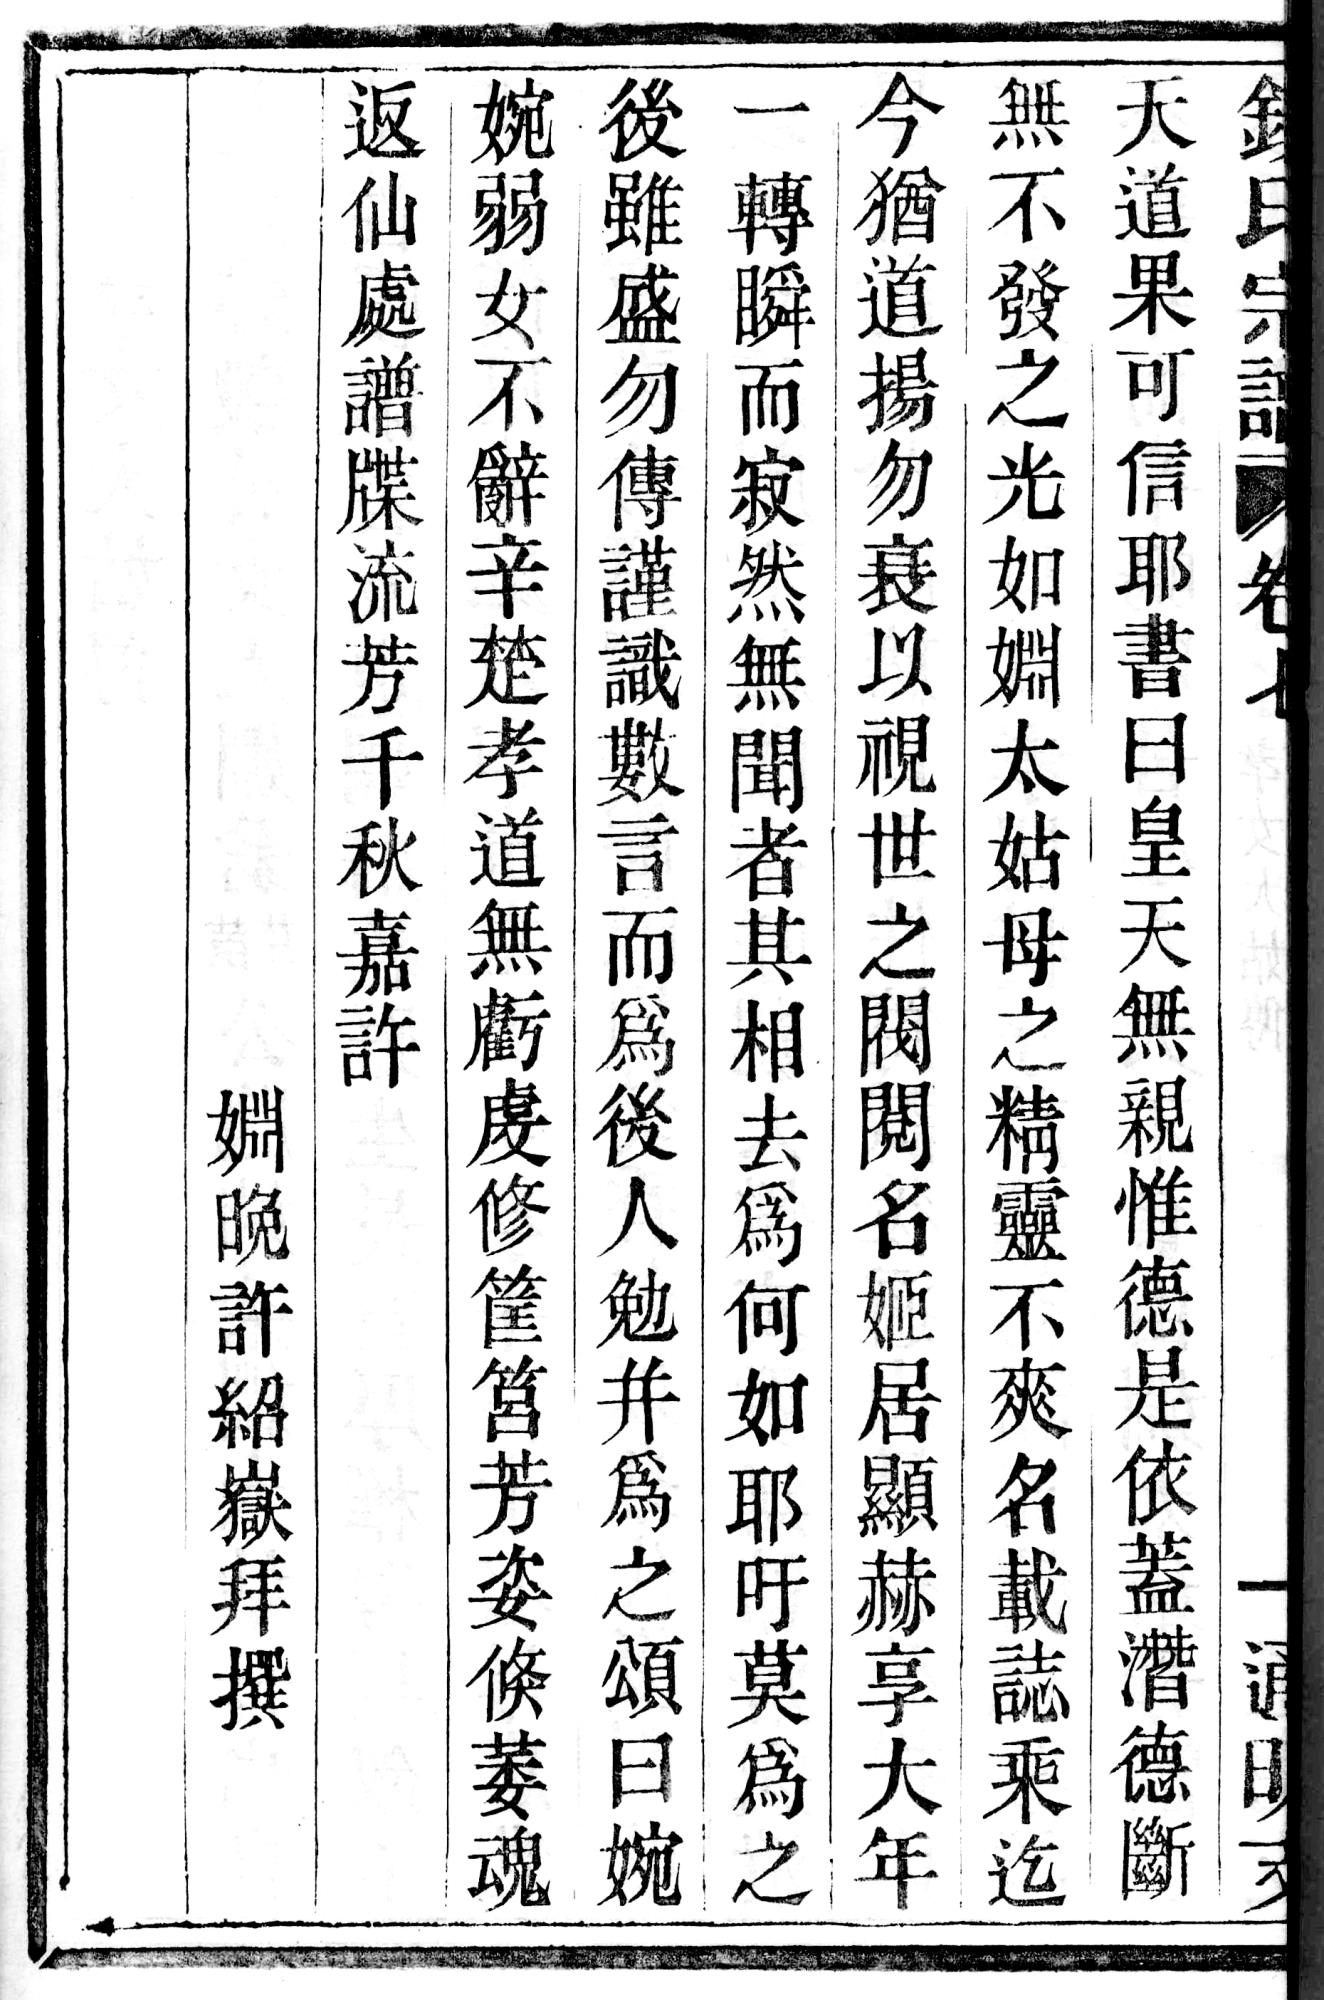 氏宗譜 卷七 一 通明
天道果可信耶書曰皇天無親惟德是依蓋潛德斷
無不發之光如婣太姑母之精靈不爽名載誌乘迄
今猶道揚勿衰以視世之閥閱名姬居顯赫享大年
一轉瞬而寂然無聞者其相去爲何如耶吁莫爲之
後雖盛勿傳謹識數言而爲後人勉幷爲之頌曰婉
婉弱女不辭辛楚孝道無虧虔修筐筥芳姿倏萎魂
返仙處譜牒流芳千秋嘉許
婣晚許紹嶽拜撰